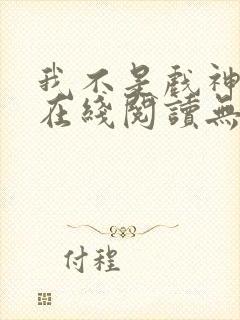 我不是戲神
在綫閱讀無
付程